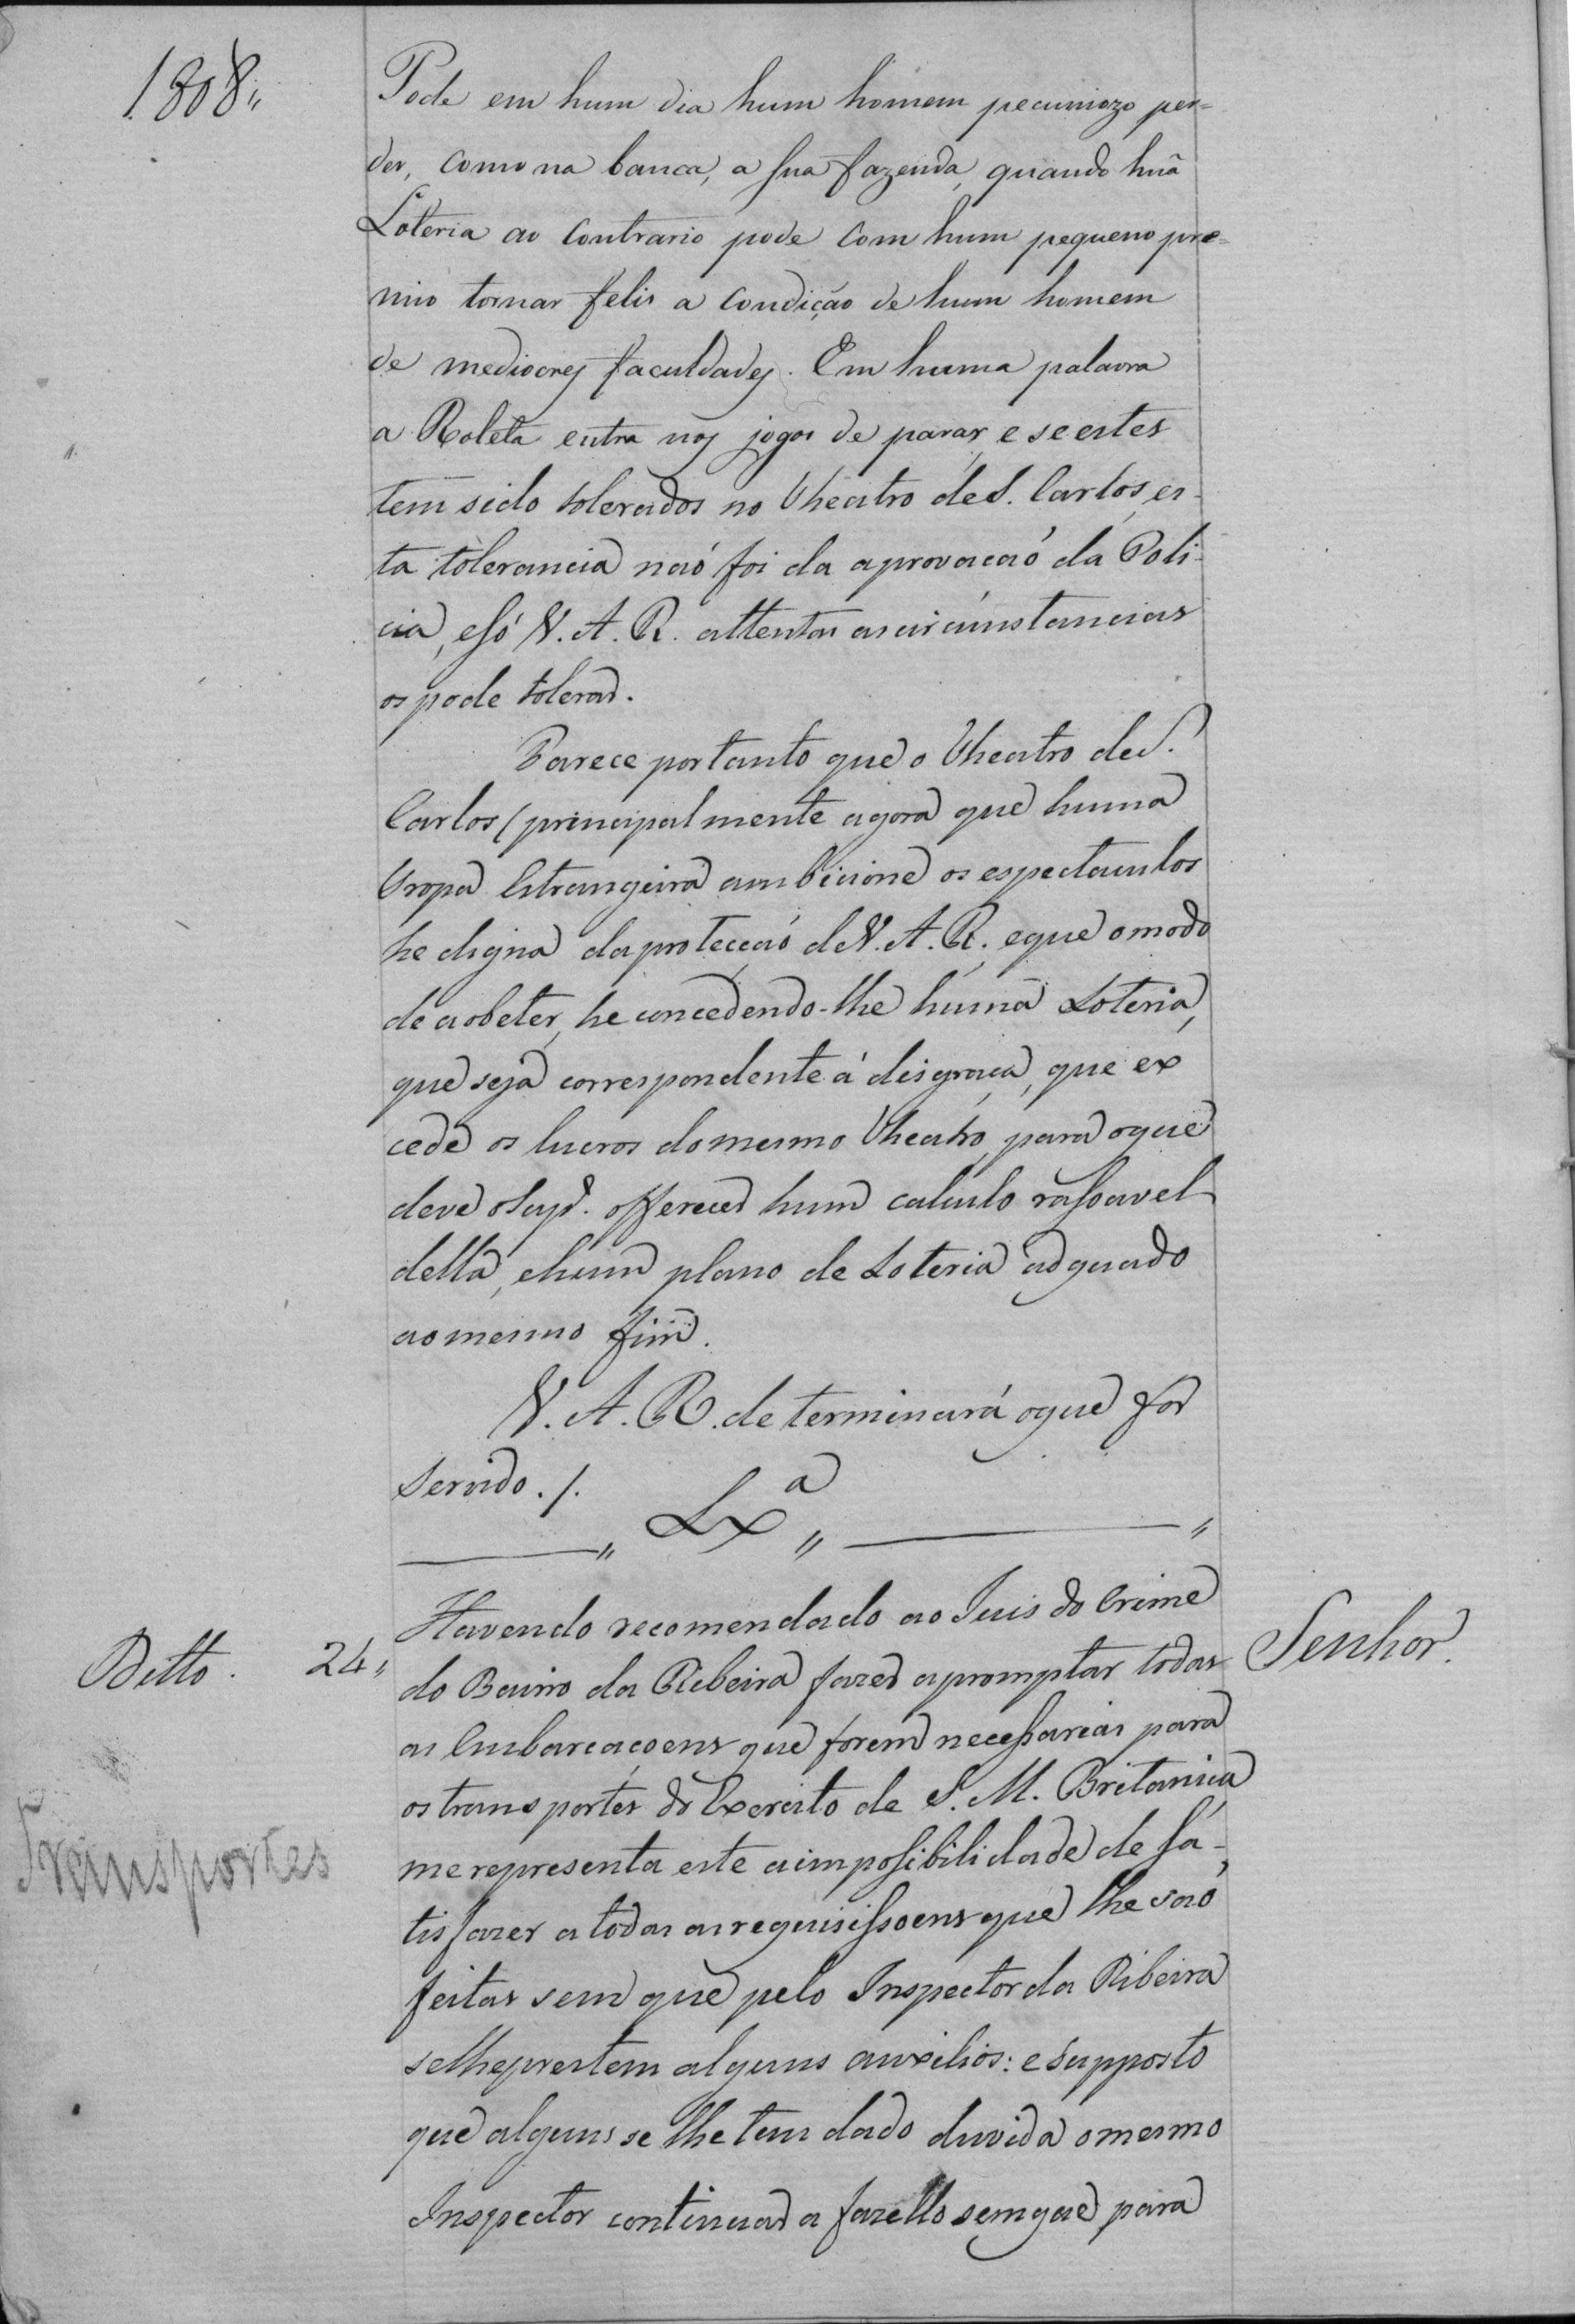 1808,,
Pode em hum dia hum homem pecuniozo per=
der, como na banca, a sua fazenda, quando huã
Loteria ao contrario pode com hum pequeno pre=
mio tornar felis a condição de hum homem
de mediocres faculdades. Em huma palavra
a Roleta entra nos jogos de parar, e se estes
tem sido tolerados no Theatro de S. Carlos, es-
ta tolerancia naó foi da aprovacaó da Poli-
cia, e só V. A. R. attentas as circunstancias
os pode tolerar.
Parece portanto que o Theatro de S.
Carlos (principalmente agora que huma
Tropa Estrangeira ambicione os espectaculos
he digna da protecçaó de V. A. R., e que o modo
de a obeter, he concedendo-lhe huma Loteria,
que seja correspondente á disgraça, que ex
cede os lucros do mesmo Theatro, para o que
deve o Sup.e offerecer hum calculo rasoavel
della, e hum plano de Loteria adquado
ao mesmo fim.
V. A. R. determinará o que for
servido./.
,, Lx.a ,, ,,
Ditto. 24,,
Senhor.
Havendo recomendado ao Juis do Crime
do Bairro da Ribeira fazer apromptar todas
as Embarcaçoens que forem necessarias para
os transportes do Exercito de S. M. Britanica,
me representa este a impossibilidade de sa-
tisfazer a todas as requisissoens que lhe saó
feitas sem que pelo Inspector da Ribeira
se lhe prestem alguns auxilios: e supposto
que alguns se lhe tem dado duvida o mesmo
Inspector continuar a fazello sem que para
Transportes